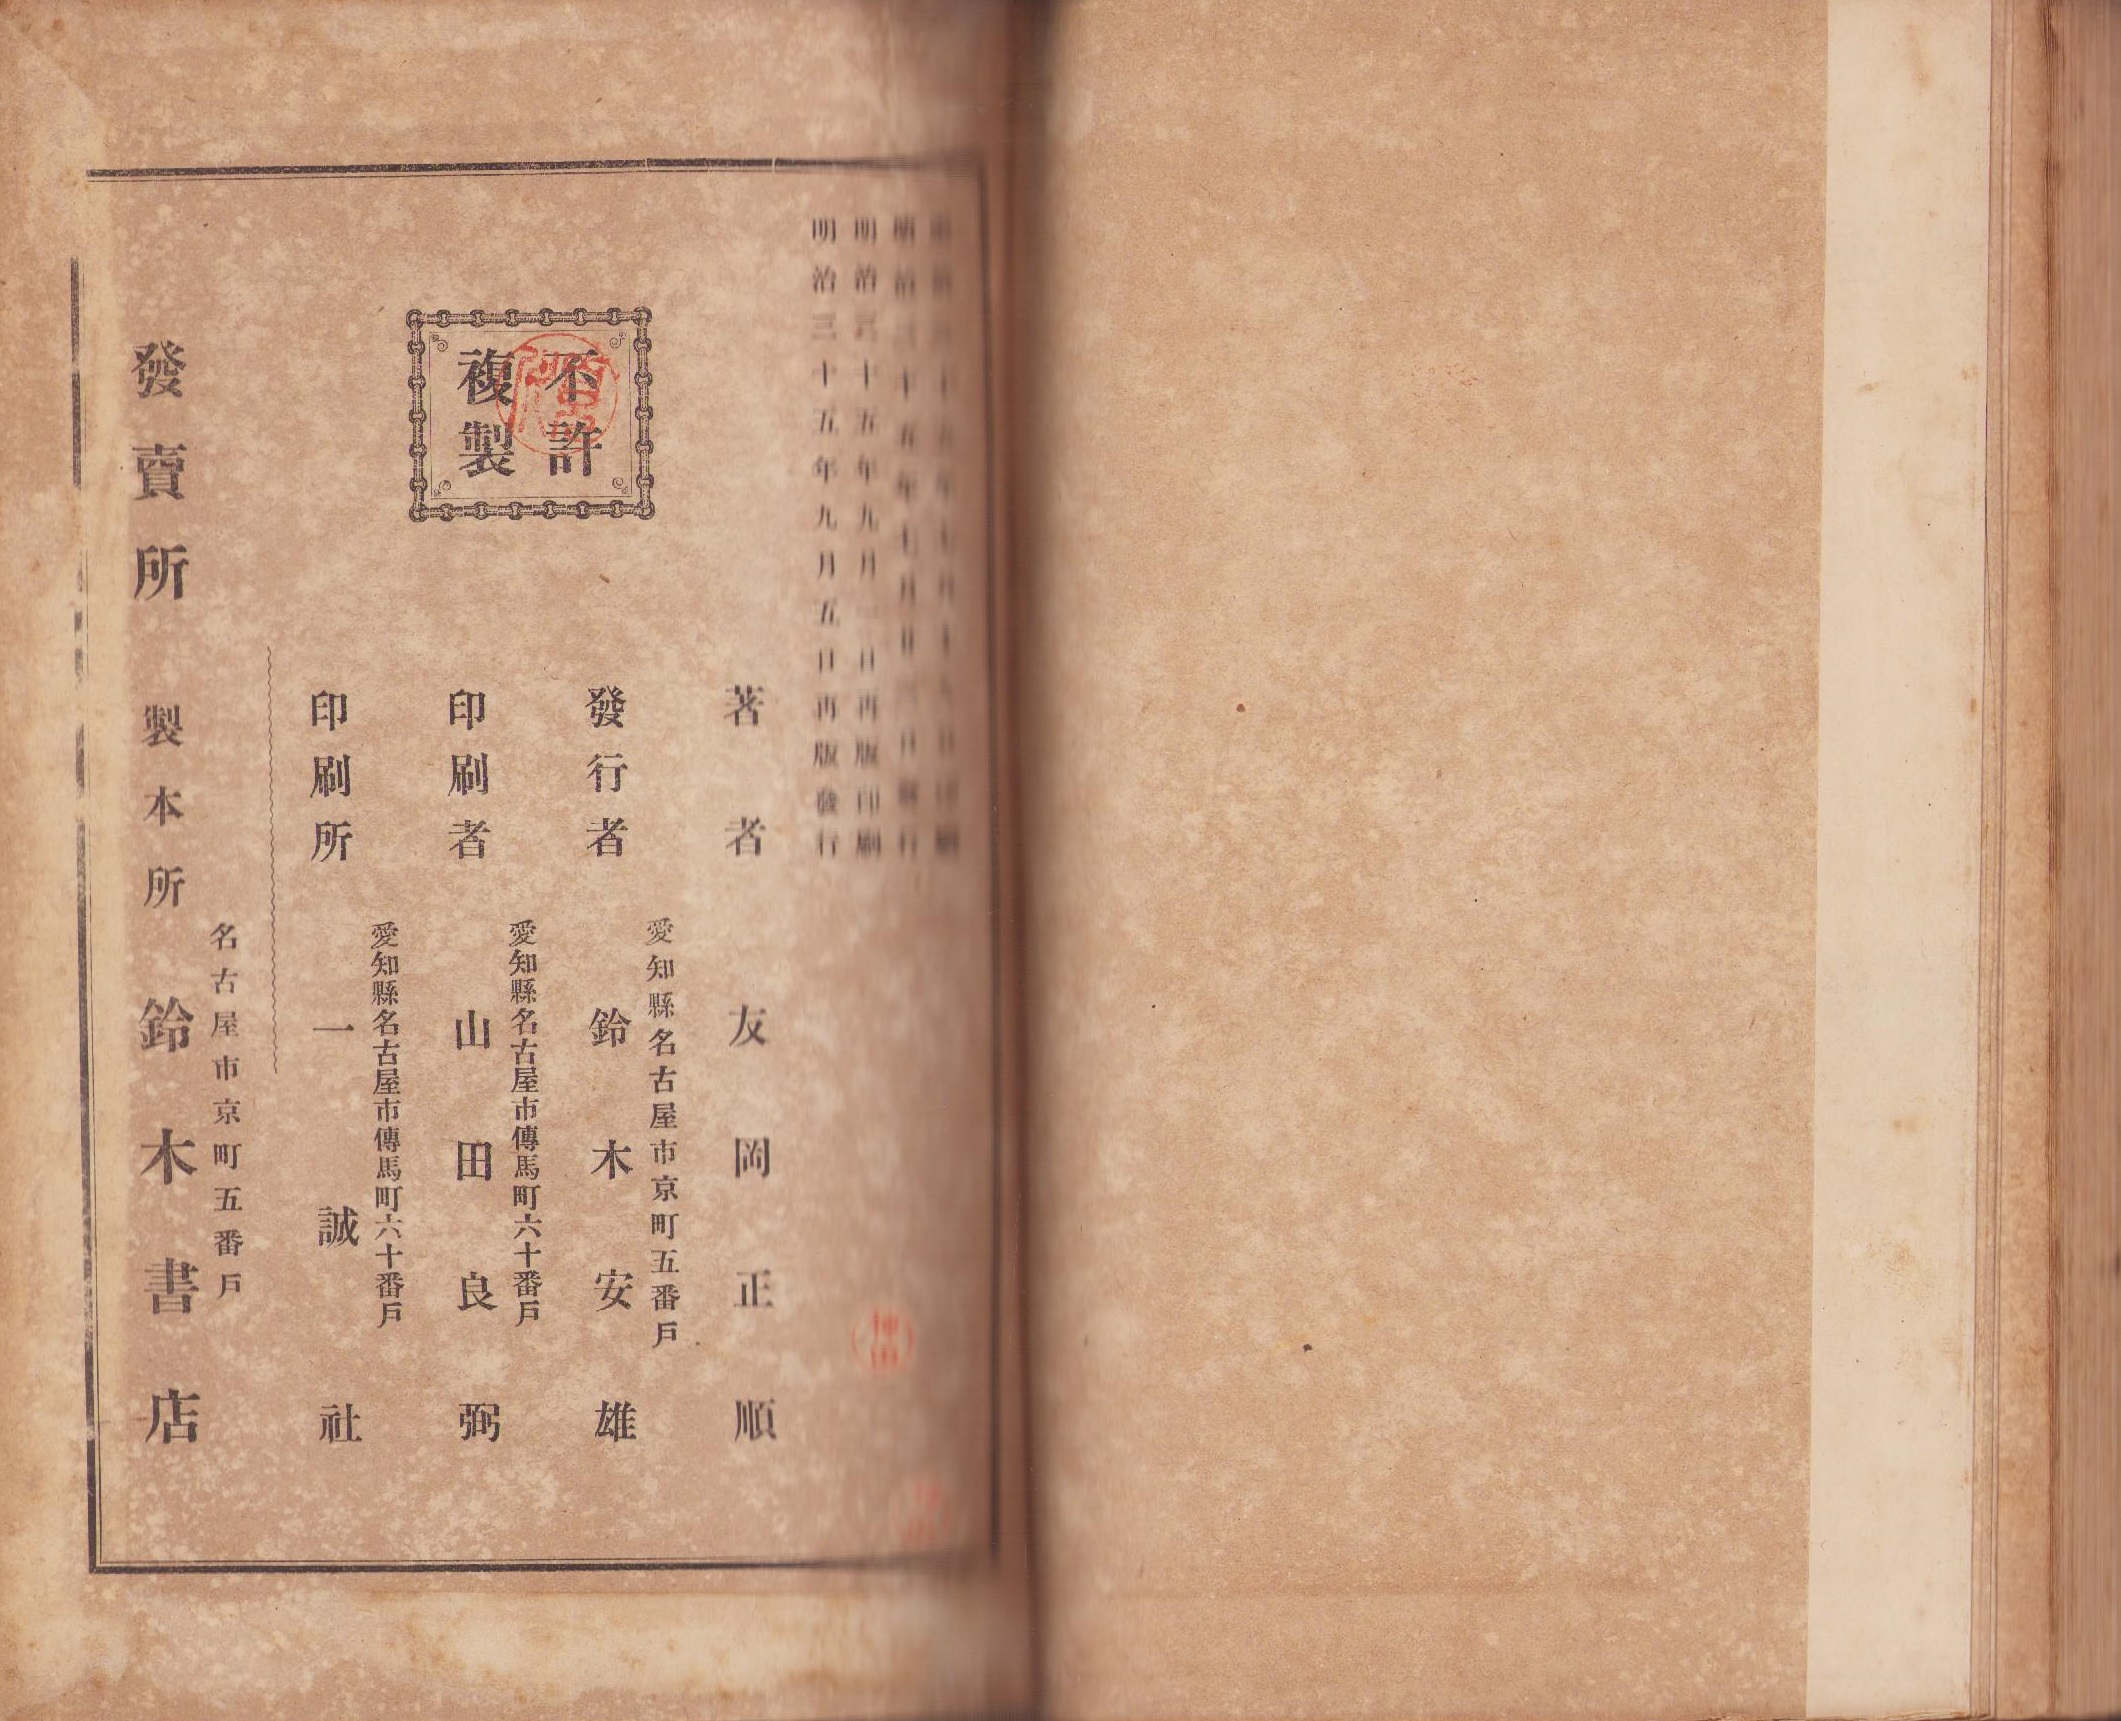 明治三十五年七月十八日印刷
明治三十五年七月廿二日發行
明治三十五年九月一日再版印刷
明治三十五年九月五日再版發行
不許
複製
著者 友岡正順
愛知縣名古屋市京町五番戶
發行者 鈴木安雄
愛知縣名古屋市傳馬町六十番戶
印刷者 山田良弼
愛知縣名古屋市傳馬町六十番戶
印刷所 一誠社
名古屋市京町五番戶
發賣所 製本所 鈴木書店